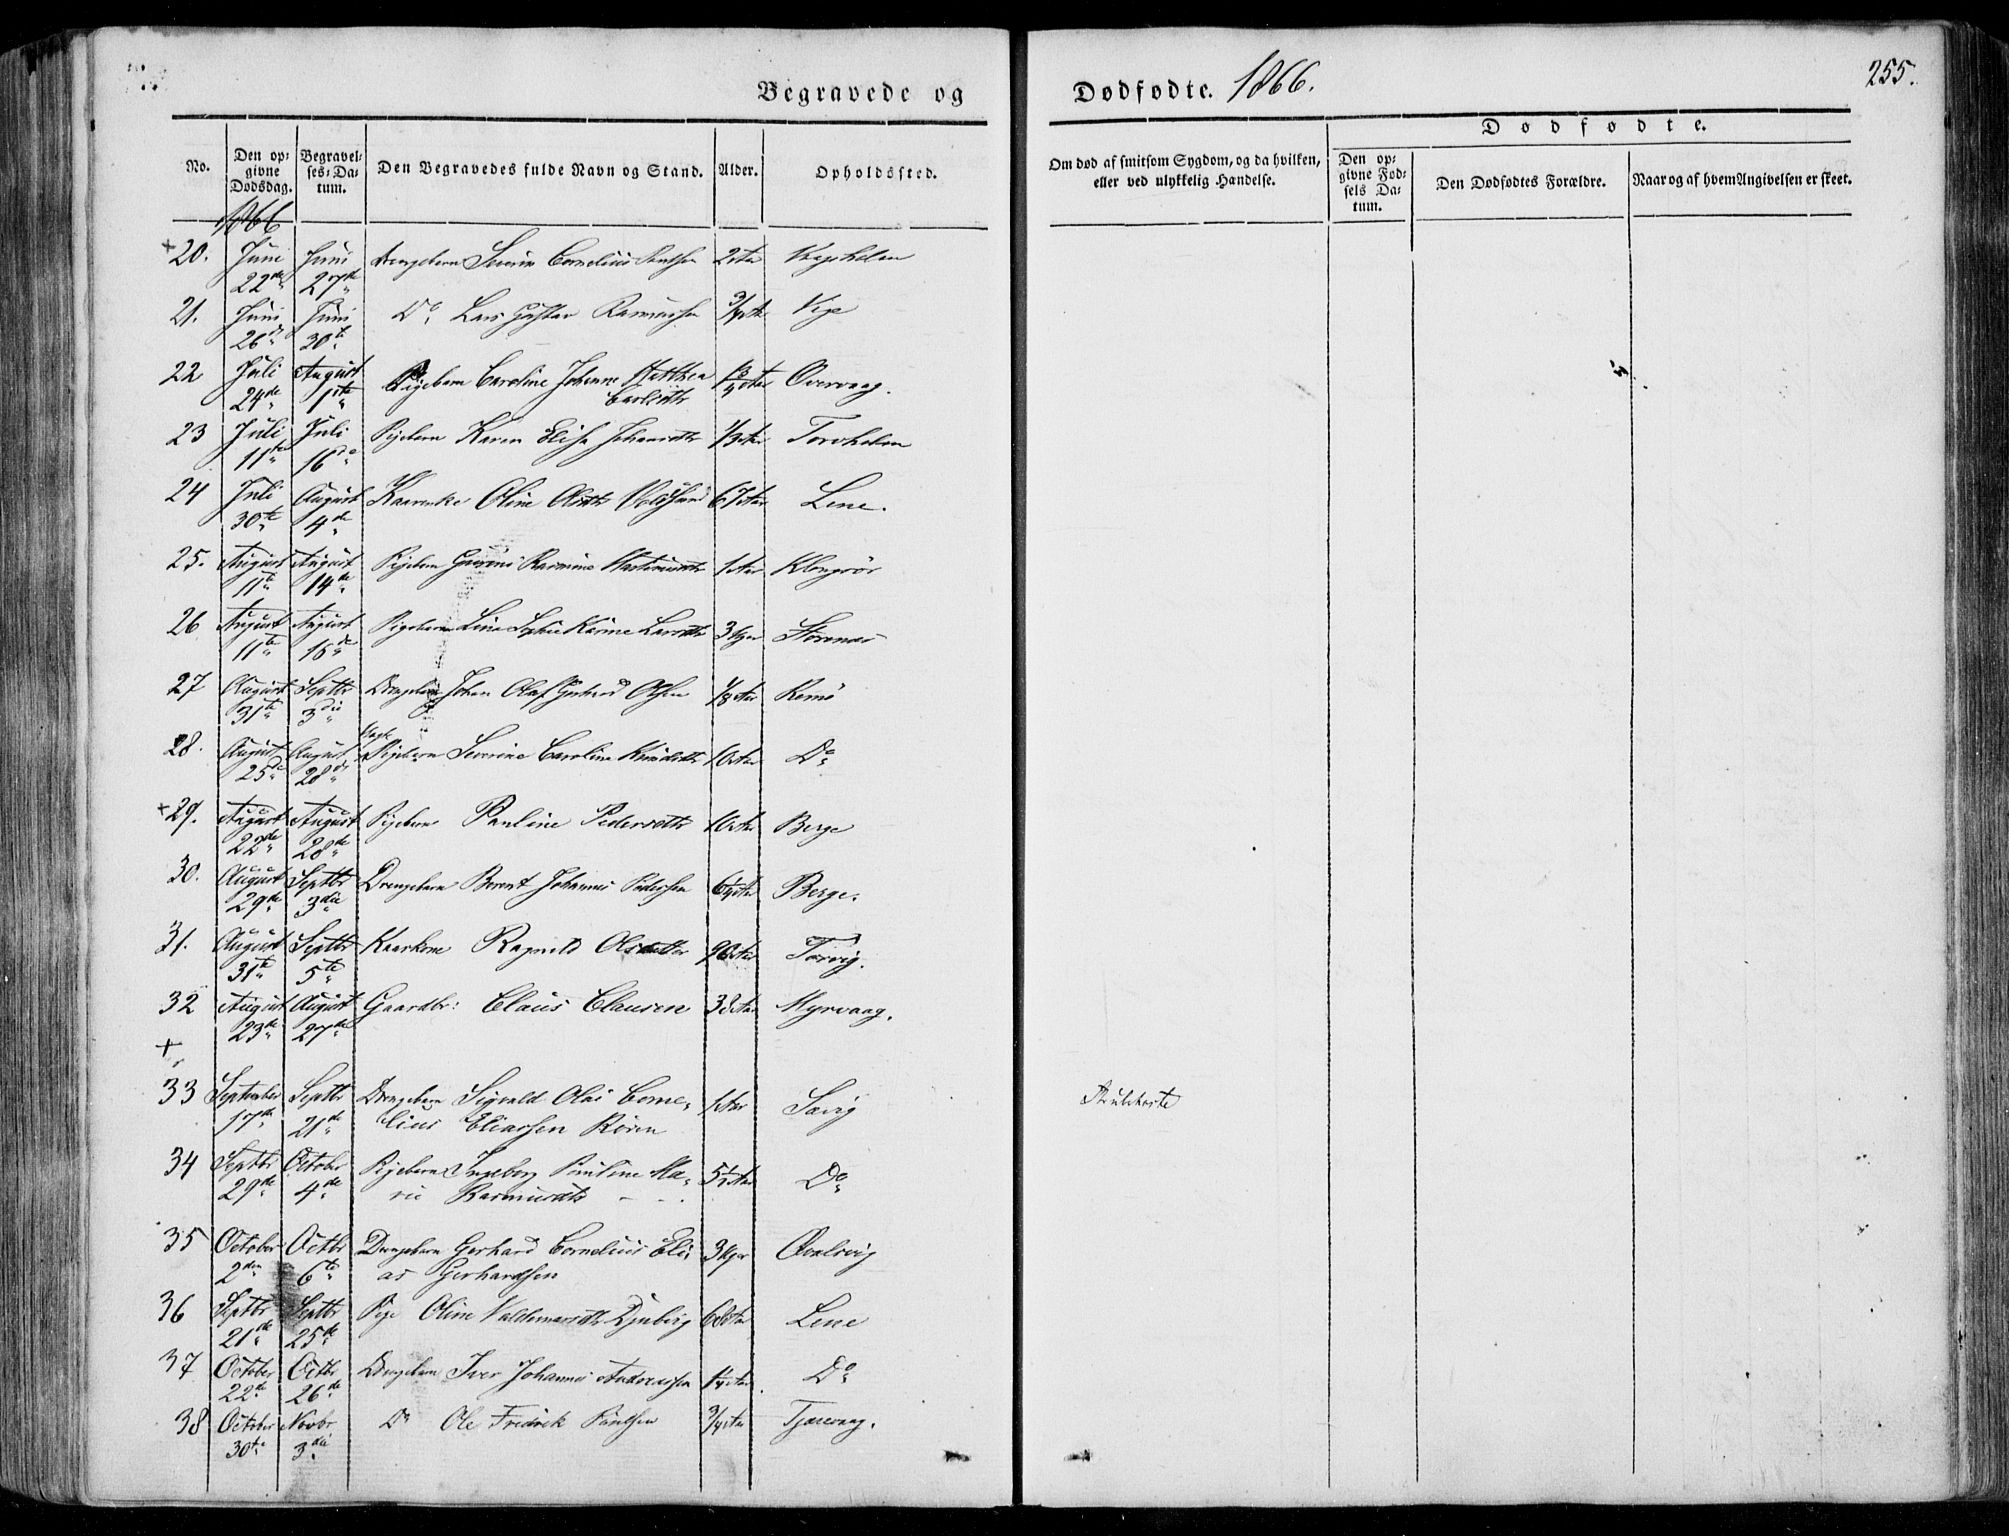 Begravede og
Dødfødte. 1866.
255.
No.
Den opgivne Dødsdag.
Begravelses-Datum.
Den Begravedes fulde Navn og Stand.
Alder.
Opholdssted.
Om død af smitsom Sygdom, og da hvilken, eller ved ulykkelig Hændelse.
Dødfødte.
Den opgivne Fødsels Datum.
Den Dødfødtes Forældre.
Naar og af hvem Angivelsen er skeet.
1866
+20. Juni 22de Juni 27de Drengebarn Severin Cornelius
21. Juni 26de Juni 30te Do Lars Gustav Rasmussen 3/4 Vige
22 Juli 24de August 1ste Pigebarn Caroline Johanne Matthea Carlsdtr Overvaag.
23 Juli 11te Juli 16de Pigebarn Karen Elise Johansdtr 1/3 Torvholm
24 Juli 30te August 4de Oline Lene.
25. August 11te August 14de Pigebarn Rasmine
26 August 11te August 15de Pigebarn Line Sophie Karine Larsdtr 3 Storenæs
27 August 31te Septbr 3die Drengebarn Johan Olaf Olsen 1/8 Remö
28. August 25de August 28de Pigebarn Severine Caroline Knudsdtr 10 Do
+29. August 22de August 28de Pigebarn Pauline Pedersdtr 10 Berge
30. August 29de Septbr 3die Drengebarn Berent Johannes Pedersen 6 1/4 Berge.
31. August 31te Septbr 5te Ragnild Olsdatter Torvig.
32 August 23de August 27de Gaardbr: Claus Clausen 38 Myrvaag.
+
33 September 17de Septbr 21de Drengebarn Sigvald Olai Corne-
lius Eliassen Rören 1 Sævig
34 Septbr 29de October 4de Pigebarn Ingeborg Pauline Ma-
rie Rasmusdtr 5 1/2 Do
35 October 2den Octbr 6te Drengebarn Gerhard Cornelius Eli-
as Gerhardsen 3
36 Septbr 21de Septbr 25de Pige Oline Valdemarsdtr 68 Lene
37 October 22de Octbr 26de Drengebarn Iver Johannes Andreassen Do
38 October 30te Novbr 3die Do Ole Fredrik 3/4 Tjærevaag.